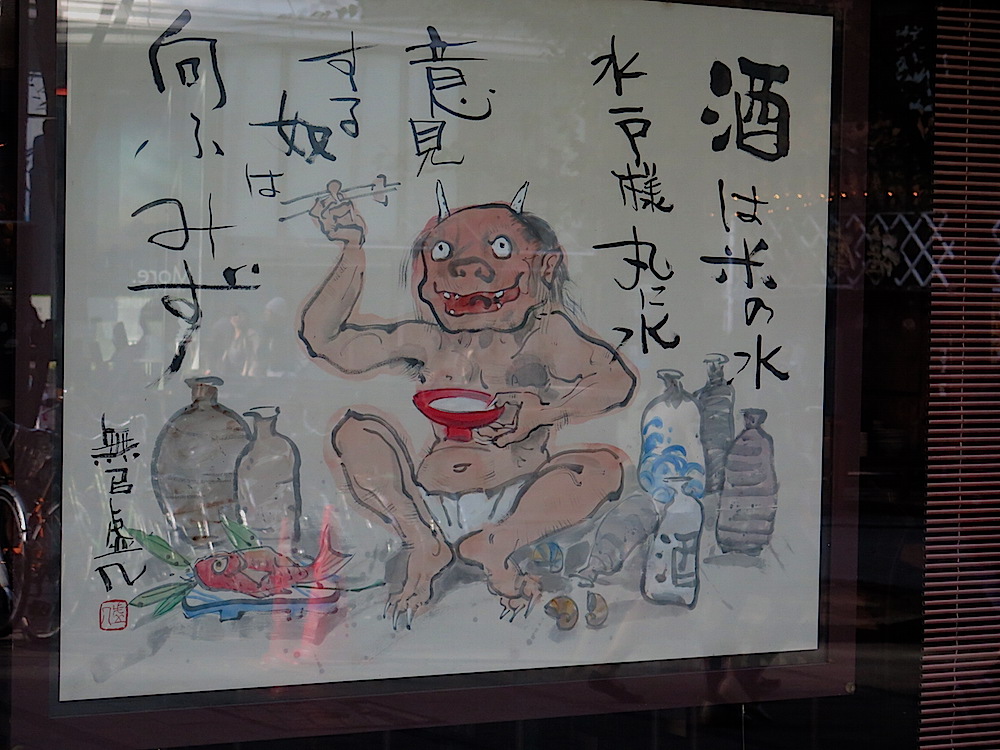 酒は米の水
水戸様丸に水
意見
する
奴は
向ふみず
酒